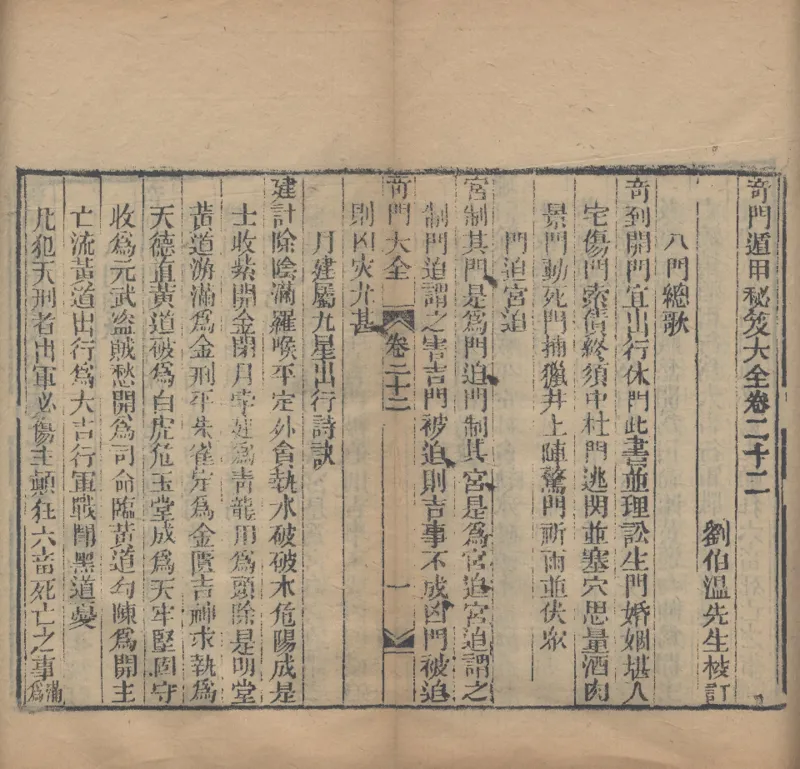 奇門遁甲秘笈大全卷二十二
劉伯溫先生校訂
八門總歌
奇到開門宜出行休門此書並理訟生門婚姻堪人
宅傷門索債終須中杜門逃閃並塞穴思量酒肉
景門動死門捕獵井上陣驚門祈雨並伏眾
門迫宮迫
宮制其門是爲門迫門制其宮是爲宮迫宮迫謂之
制門迫謂之害吉門被迫則吉事不成凶門被迫
奇門大全 卷二十二 一
則凶灾尤甚
月建屬九星出行詩訣
建計除陰滿羅喉平定外貪執水破破木危陽成是
土收紫開金閉月孛建爲青龍用爲頭除是明堂
黃道游滿爲金刑平朱雀定爲金匱吉神求執爲
天德道黃道破爲白虎危玉堂成爲天牢堅固守
收爲元武盜賊愁開爲司命臨黃道勾陳爲開主
亡流黃道出行爲大吉行軍戰鬪黑道憂
凡犯天刑者出軍必傷主顛狂六畜死亡之事滿爲